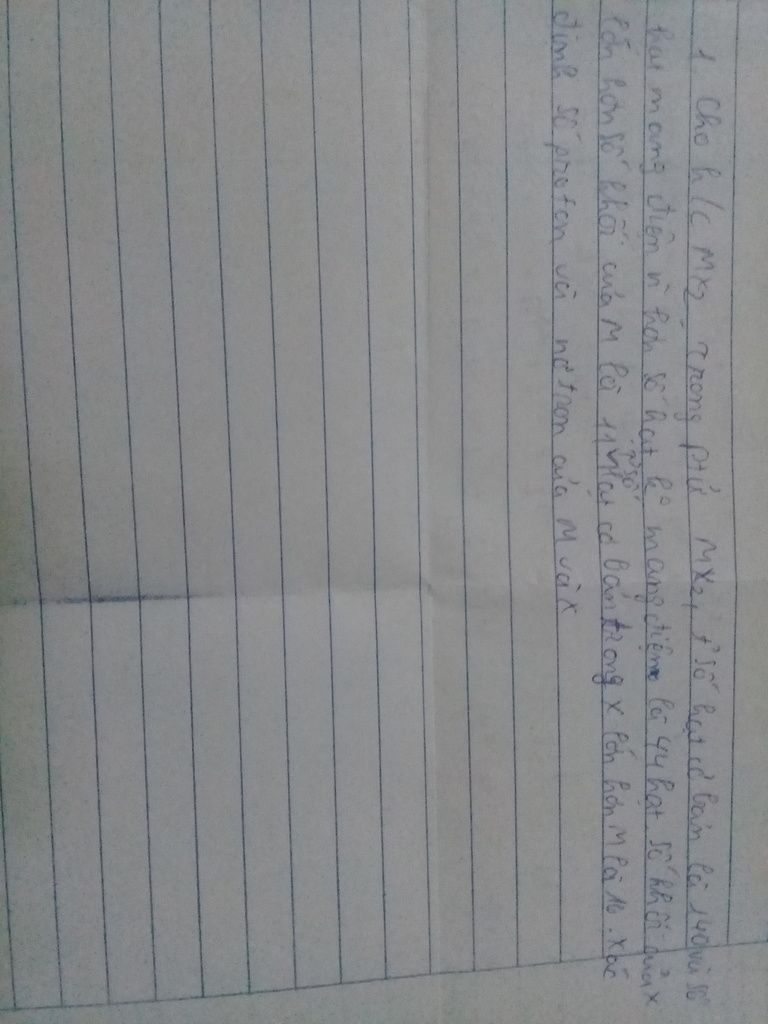 1. Cho h/c MX2, trong ptử MX2, t° số hạt cơ bản là 140 và số
hạt mang điện n hơn số hạt k° mang điện là 44 hạt. số khối của X
lớn hơn số khối của M là 11, t° số hạt cơ bản trong X lớn hơn M là 16. Xác
định số proton và nơtron của M và X